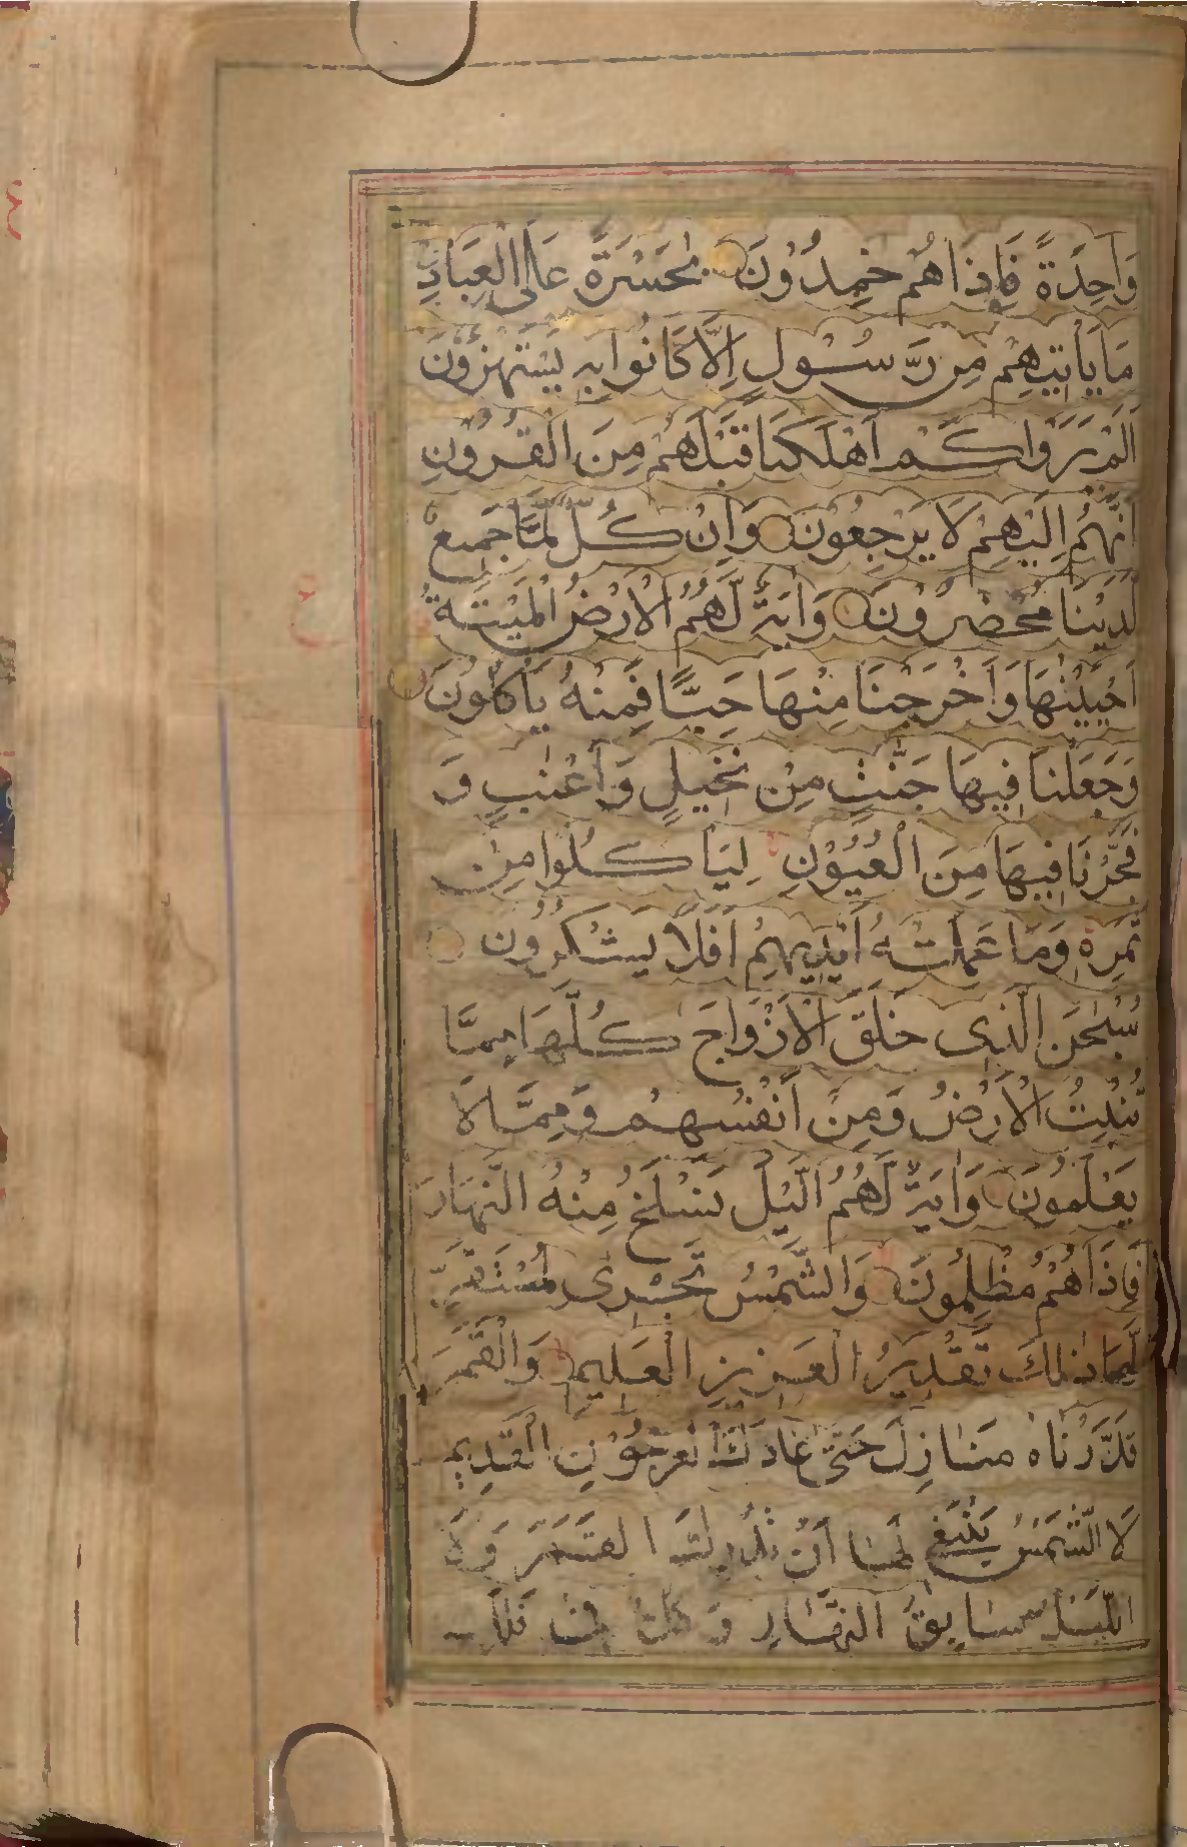 وَاحِدَةً فَاِذَا هُمْ خٰمِدُوْنَ يٰحَسْرَةً عَلَى الْعِبَادِ
مَا يَاْتِيْهِمْ مِنْ رَّسُوْلٍ اِلَّا كَانُوْا بِهٖ يَسْتَهْزِؤُنَ
اَلَمْ يَرَوْا كَمْ اَهْلَكْنَا قَبْلَهُمْ مِنَ الْقُرُوْنِ
اَنَّهُمْ اِلَيْهِمْ لَا يَرْجِعُوْنَ وَاِنْ كُلٌّ لَّمَّا جَمِيْعٌ
لَّدَيْنَا مُحْضَرُوْنَ وَاٰيَةٌ لَّهُمُ الْاَرْضُ الْمَيْتَةُ
اَحْيَيْنٰهَا وَاَخْرَجْنَا مِنْهَا حَبًّا فَمِنْهُ يَاْكُلُوْنَ
وَجَعَلْنَا فِيْهَا جَنّٰتٍ مِنْ نَّخِيْلٍ وَّاَعْنٰبٍ وَّ
فَجَّرْنَا فِيْهَا مِنَ الْعُيُوْنِ لِيَاْكُلُوْا مِنْ
ثَمَرِهٖ وَمَا عَمِلَتْهُ اَيْدِيْهِمْ اَفَلَا يَشْكُرُوْنَ
سُبْحٰنَ الَّذِىْ خَلَقَ الْاَزْوَاجَ كُلَّهَا مِمَّا
تُنْبِتُ الْاَرْضُ وَمِنْ اَنْفُسِهِمْ وَمِمَّا لَا
يَعْلَمُوْنَ وَاٰيَةٌ لَّهُمُ الَّيْلُ نَسْلَخُ مِنْهُ النَّهَارَ
فَاِذَا هُمْ مُّظْلِمُوْنَ وَالشَّمْسُ تَجْرِىْ لِمُسْتَقَرٍّ
لَّهَا ذٰلِكَ تَقْدِيْرُ الْعَزِيْزِ الْعَلِيْمِ وَالْقَمَرَ
قَدَّرْنَاهُ مَنَازِلَ حَتّٰى عَادَ كَالْعُرْجُوْنِ الْقَدِيْمِ
لَا الشَّمْسُ يَنْبَغِىْ لَهَا اَنْ تُدْرِكَ الْقَمَرَ وَلَا
الَّيْلُ سَابِقُ النَّهَارِ وَكُلٌّ فِىْ فَلَكٍ